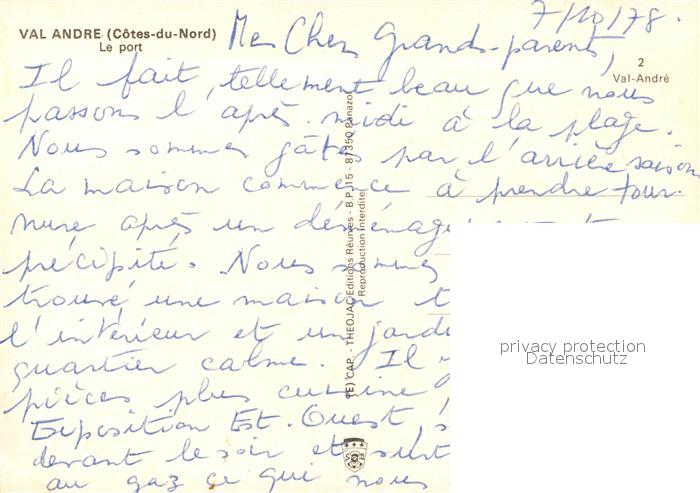 7/10/78.
VAL ANDRE (Côtes-du-Nord)
Le port
Mes Chers Grands-parents,
2
Val-André
Il fait, tellement beau que nous
passons l'après-midi à la plage.
Nous sommes gâtés par l'arrière saison
La maison commence à prendre tour-
nure après un déménage
précipité. Nous sommes
trouvé une maison
l'intérieur et un jardi
quartier calme. Il
pièces plus cuisine
Exposition Est. Ouest,
devant le soir et surt
au gaz ce qui nous
(E) CAP. - THEOJAC/Editions Réunies - B.P. 15 - 87350 Panazol
Reproduction interdite
privacy protection
Datenschutz